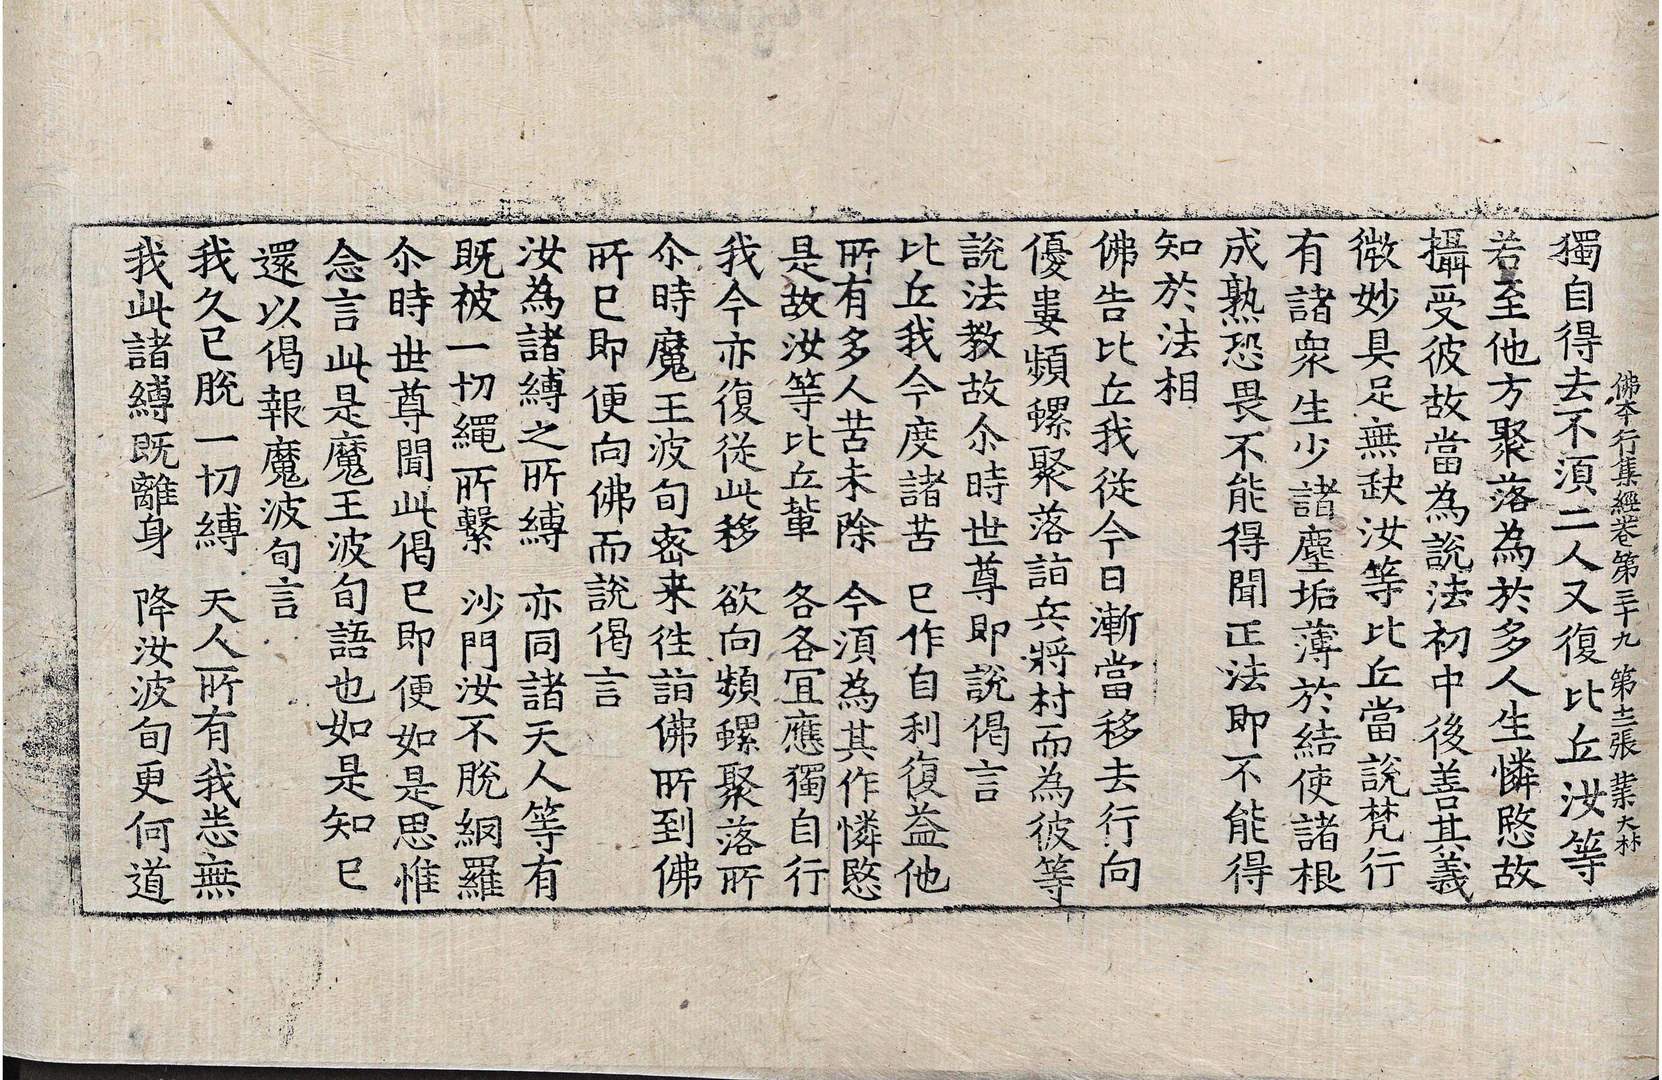 佛本行集經卷第三十九　第十三張　業　大林
獨自得去不須二人又復比丘汝等
若至他方聚落為於多人生憐愍故
攝受彼故當為說法初中後善其義
微妙具足無缺汝等比丘當說梵行
有諸衆生少諸塵垢薄於結使諸根
成熟恐畏不能得聞正法即不能得
知於法相
佛告比丘我從今日漸當移去行向
優婁頻螺聚落詣兵將村而為彼等
說法教故尒時世尊即說偈言
比丘我今度諸苦　已作自利復益他
所有多人苦未除　今須為其作憐愍
是故汝等比丘輩　各各宜應獨自行
我今亦復從此移　欲向頻螺聚落所
尒時魔王波旬密来徃詣佛所到佛
所已即便向佛而說偈言
汝為諸縛之所縛　亦同諸天人等有
既被一切繩所繫　沙門汝不脫網羅
尒時世尊聞此偈已即便如是思惟
念言此是魔王波旬語也如是知已
還以偈報魔波旬言
我久已脫一切縛　天人所有我悉無
我此諸縛既離身　降汝波旬更何道